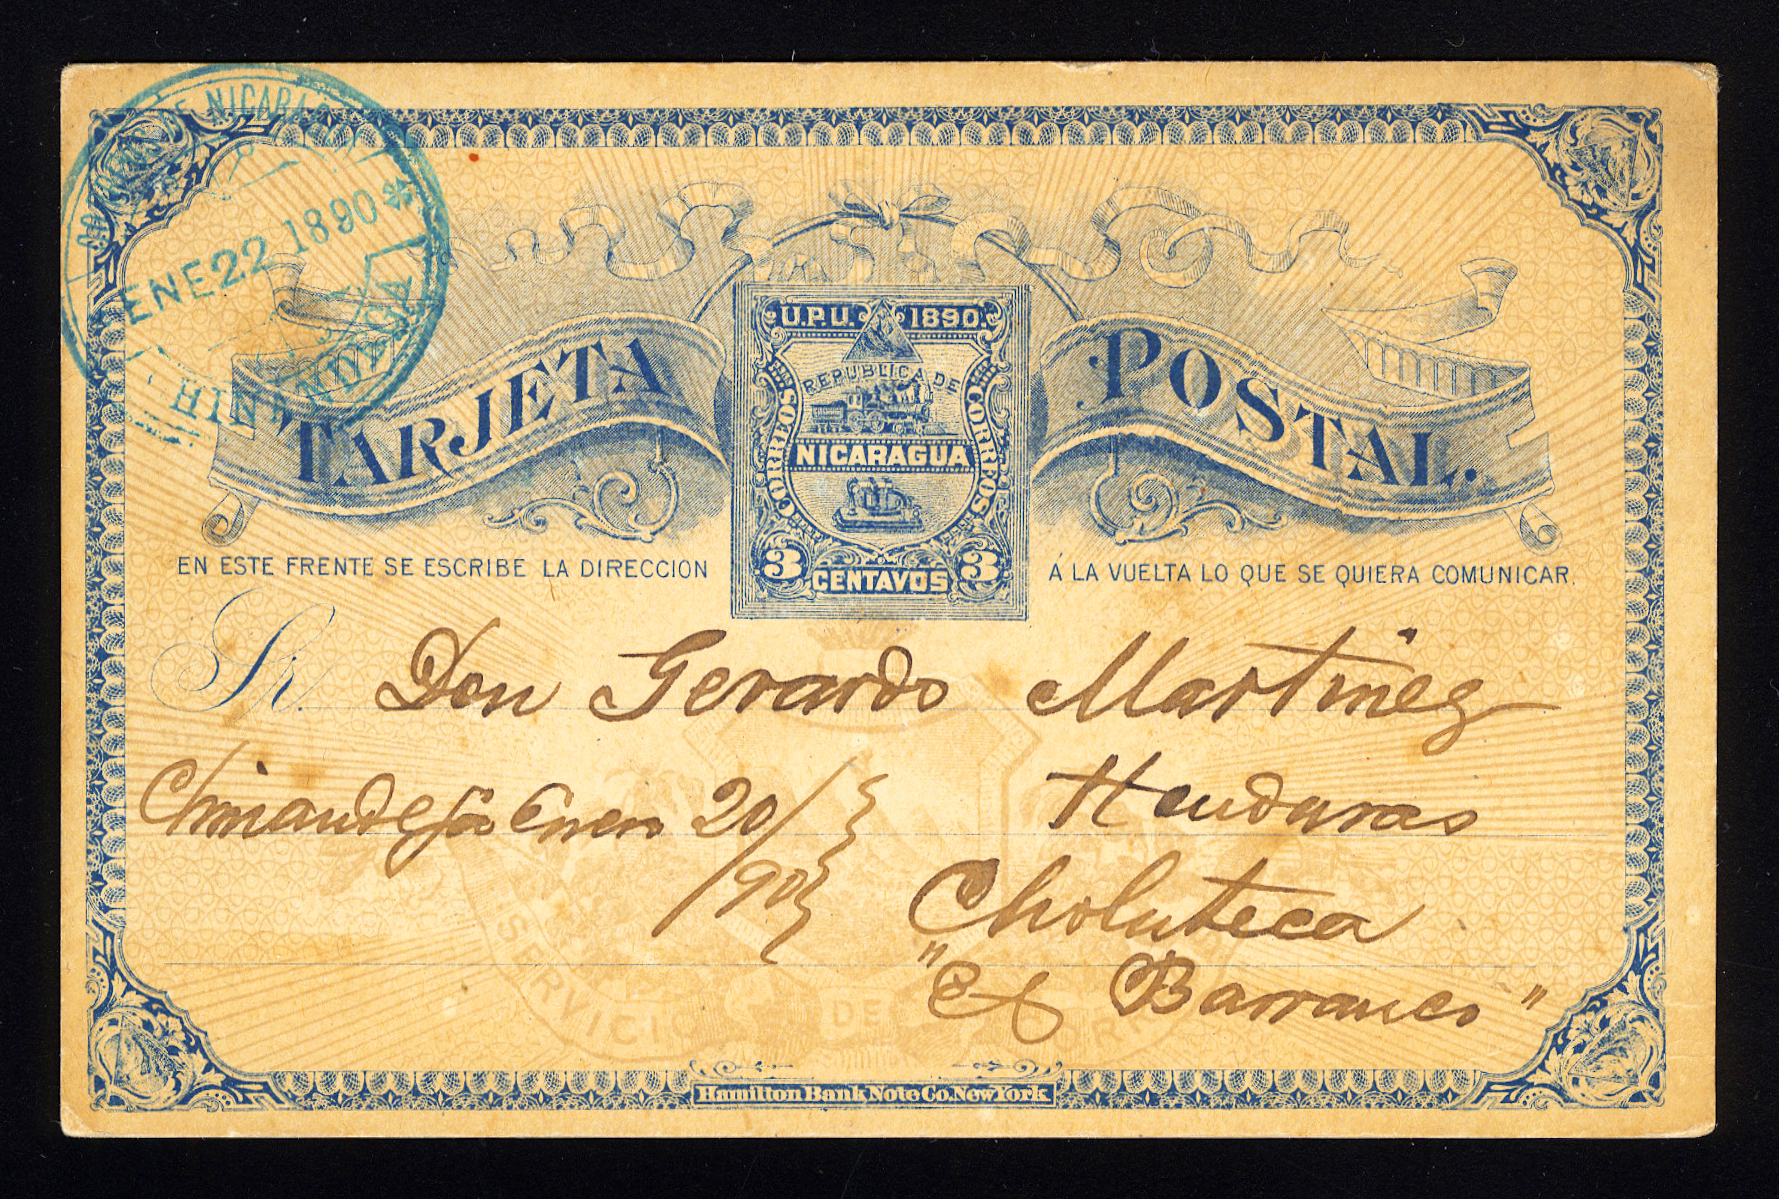 CORREOS DE NICARAGUA
ENE 22 1890
CHINANDEGA
U.P.U. 1890.
REPUBLICA DE
NICARAGUA
CORREOS
CORREOS
3 CENTAVOS 3
TARJETA POSTAL.
EN ESTE FRENTE SE ESCRIBE LA DIRECCION
Á LA VUELTA LO QUE SE QUIERA COMUNICAR.
Sr. Don Gerardo Martinez
Chinandega Enero 20/90
Honduras
Choluteca
"El Barranco"
SERVICIO DE
Hamilton Bank Note Co. New York